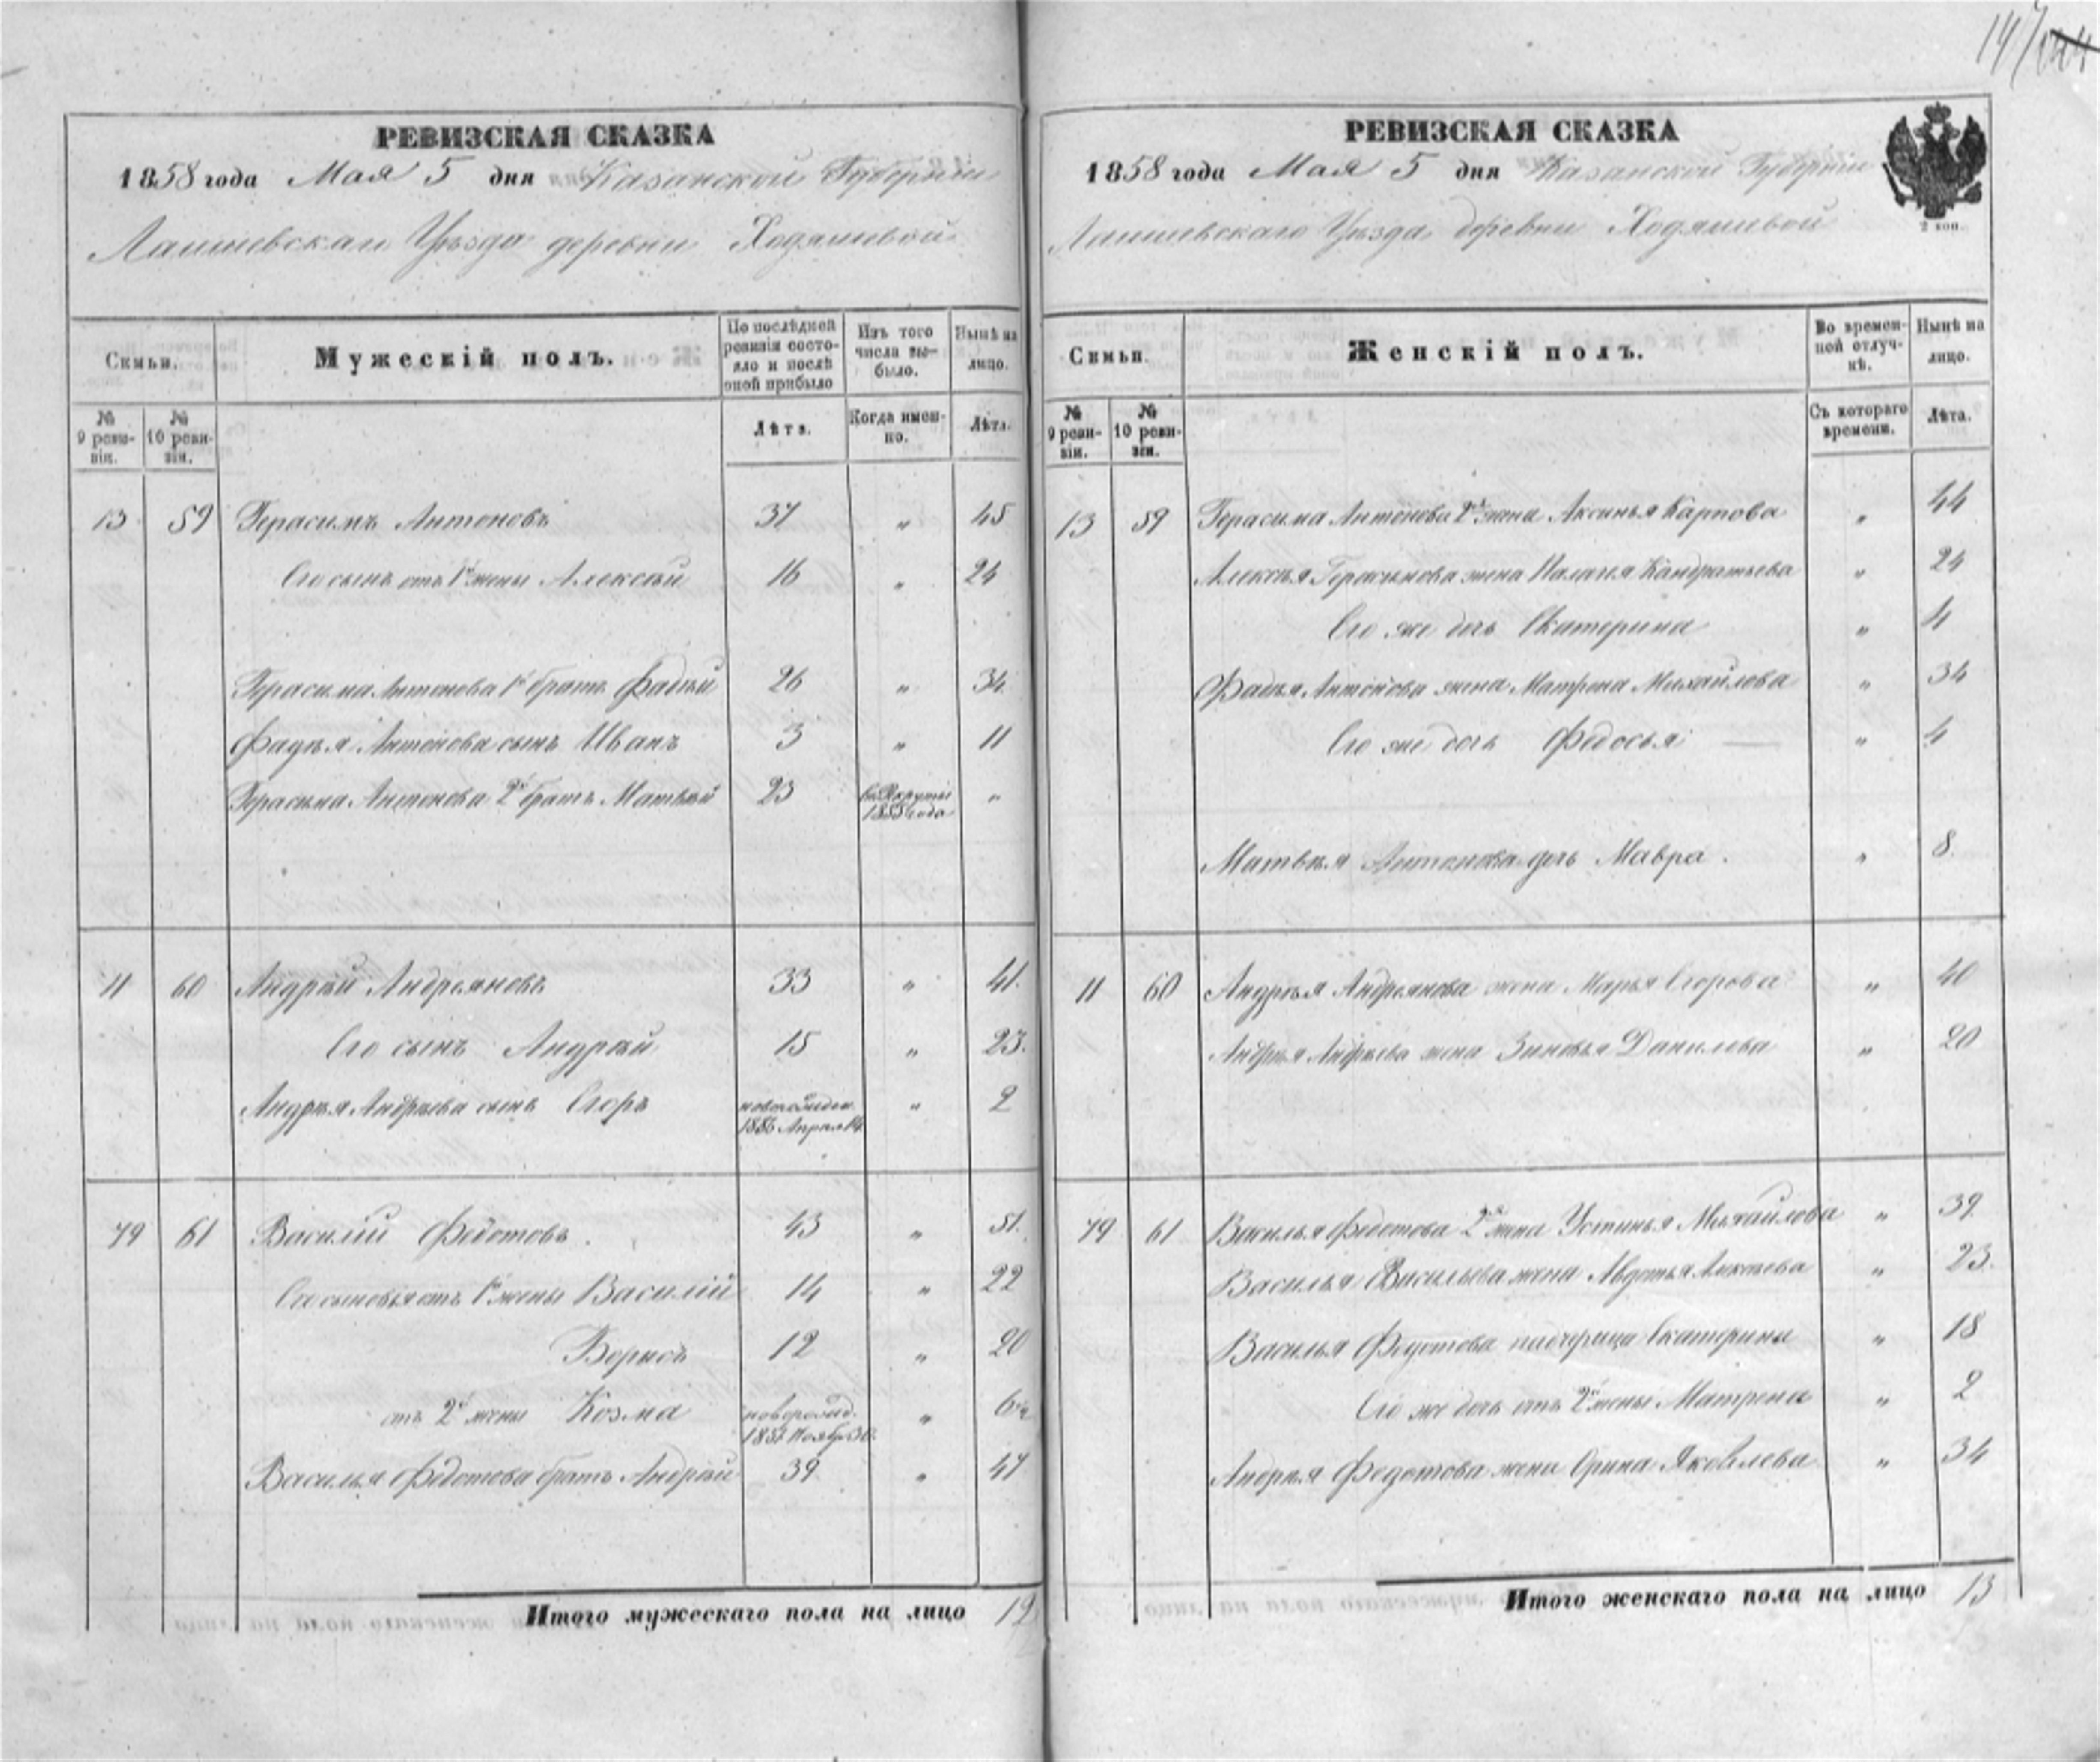 147
РЕВИЗСКАЯ СКАЗКА
1858 года Мая 5 дня Казанской Губернии
Лаишевскаго Уѣзда деревни Ходяшевой
Симьи.
Мужескій полъ.
По послѣдней ревизіи состояло и послѣ оной прибыло
Изъ того числа выбыло.
Нынѣ на лицо.
№ 9 ревизіи.
№ 10 ревизіи.
Лѣта.
Когда именно.
Лѣта.
13 59 Герасимъ Антоновъ 37 " 45
Его сынъ отъ 1й жены Алексѣй 16 " 24
Герасима Антонова 1й братъ Фадѣй 26 " 34
Фадѣя Антонова сынъ Иванъ 3 " 11
Герасима Антонова 2й братъ Матвѣй 23 въ Рекруты 1855 года "
11 60 Андрѣй Андреяновъ 33 " 41
Его сынъ Андрѣй 15 " 23.
Андрѣя Андрѣева сынъ Егоръ новорожден. 1856 Апреля 14 " 2
79 61 Василій Федотовъ. 43 " 51.
Его сыновья отъ 1й жены Василій 14 " 22
Борисъ 12 " 20
отъ 2й жены Козма новорожд. 1851 Ноябр. 30. " 6½
Василья Федотова братъ Андрѣй 39 " 47
Итого мужескаго пола на лицо 12
РЕВИЗСКАЯ СКАЗКА
1858 года Мая 5 дня Казанской Губерніи
Лаишевскаго Уѣзда деревни Ходяшевой
2 коп.
Симьи.
Женскій полъ.
Во временной отлучкѣ.
Нынѣ на лицо.
№ 9 ревизіи.
№ 10 ревизіи.
Съ котораго времени.
Лѣта.
13 59 Герасима Антонова 2я жена Аксинья Карпова " 44
Алексѣя Герасимова жена Палагея Кандратьева " 24
Его же дочь Екатерина " 4
Фадѣя Антонова жена Матрена Михайлова " 34
Его же дочь Федосья " 4
Матвѣя Антонова дочь Мавра. " 8.
11 60 Андрѣя Андреянова жена Марья Егорова " 40
Андрѣя Андрѣева жена Зиновья Данилова " 20
79 61 Василья Федотова 2я жена Устинья Михайлова " 39.
Василья Васильева жена Авдотья Алексѣева " 23.
Василья Федотова падчерица Екатерина " 18
Его же дочь отъ 2й жены Матрена " 2
Андрѣя Федотова жена Орина Яковлева " 34
Итого женскаго пола на лицо 13